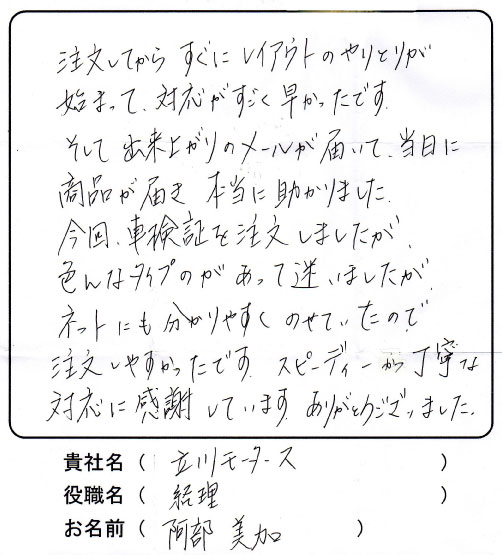 注文してから すぐに レイアウトのやりとりが
始まって、対応がすごく早かったです。
そして 出来上がりのメールが届いて、当日に
商品が届き 本当に助かりました。
今回、車検証を注文しましたが、
色んなタイプのが あって迷いましたが
ネットにも分かりやすく のせていたので
注文しやすかったです。スピーディーかつ丁寧な
対応に感謝しています。ありがとうございました。
貴社名（ 立川モータース ）
役職名（ 経理 ）
お名前（ 阿部 美加 ）